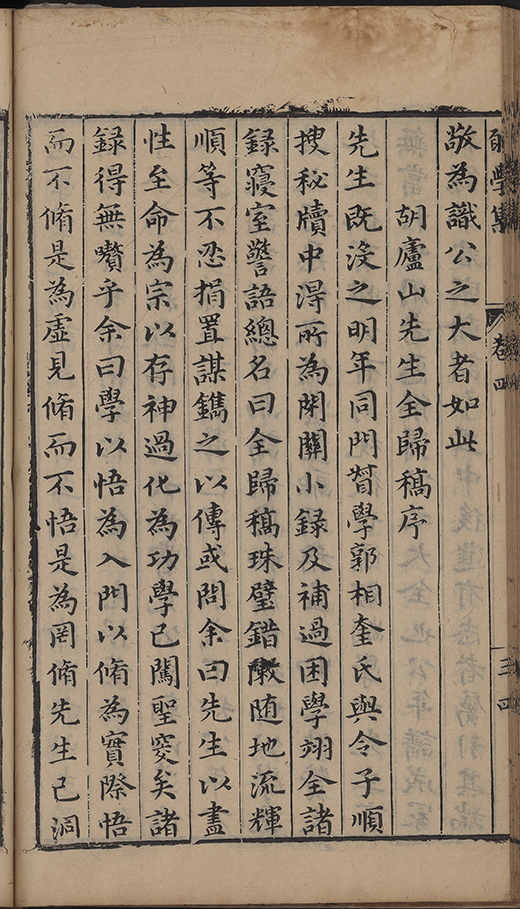 學集 卷四 三四
敬為識公之大者如此
胡廬山先生全歸稿序
先生既沒之明年同門督學郭相奎氏與令子順
搜秘牘中淂所為閑關小録及補過困學翊全諸
録寢室警語總名曰全歸稿珠璧錯散随地流輝
順等不忍捐置謀鐫之以傳或問余曰先生以盡
性至命為宗以存神過化為功學已闖聖奧矣諸
録得無嚽乎余曰學以悟為入門以脩為實際悟
而不脩是為虛見脩而不悟是為罔脩先生已洞